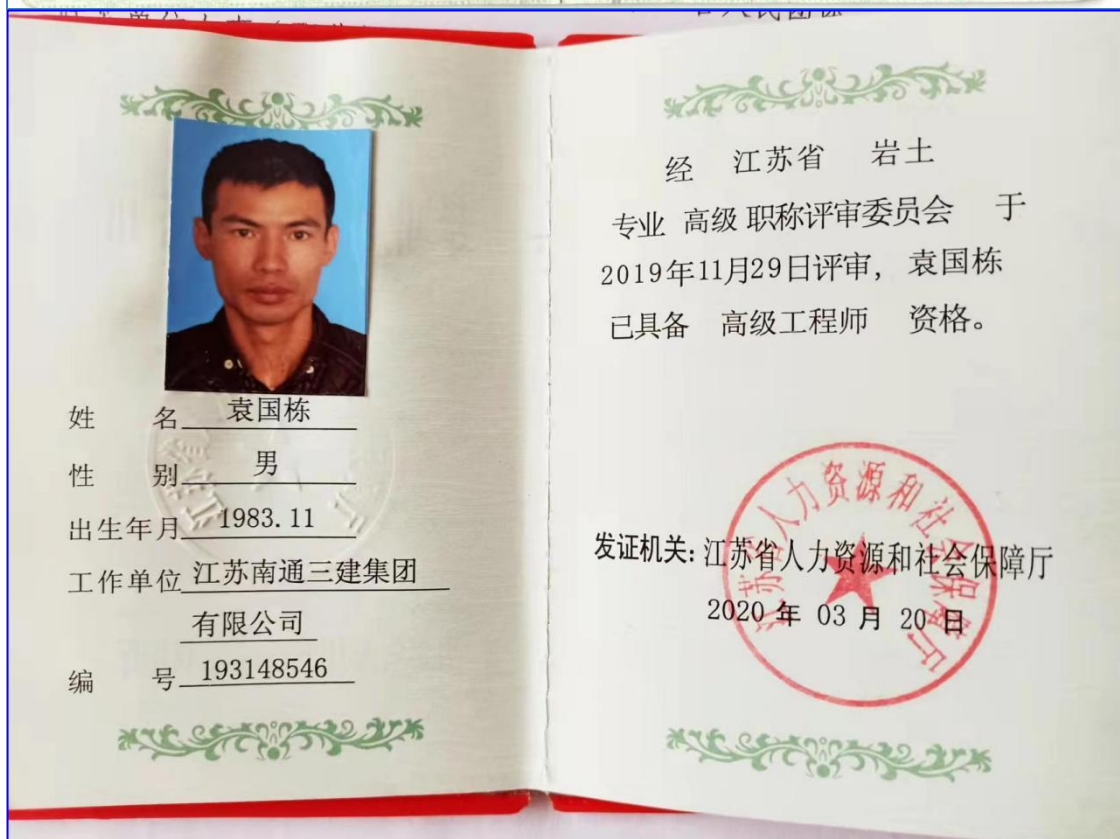 姓名 袁国栋
性别 男
出生年月 1983.11
工作单位 江苏南通三建集团
有限公司
编号 193148546
经 江苏省 岩土
专业 高级 职称评审委员会 于
2019年11月29日评审，袁国栋
已具备 高级工程师 资格。
发证机关：江苏省人力资源和社会保障厅
2020 年 03 月 20 日
江苏省人力资源和社会保障厅